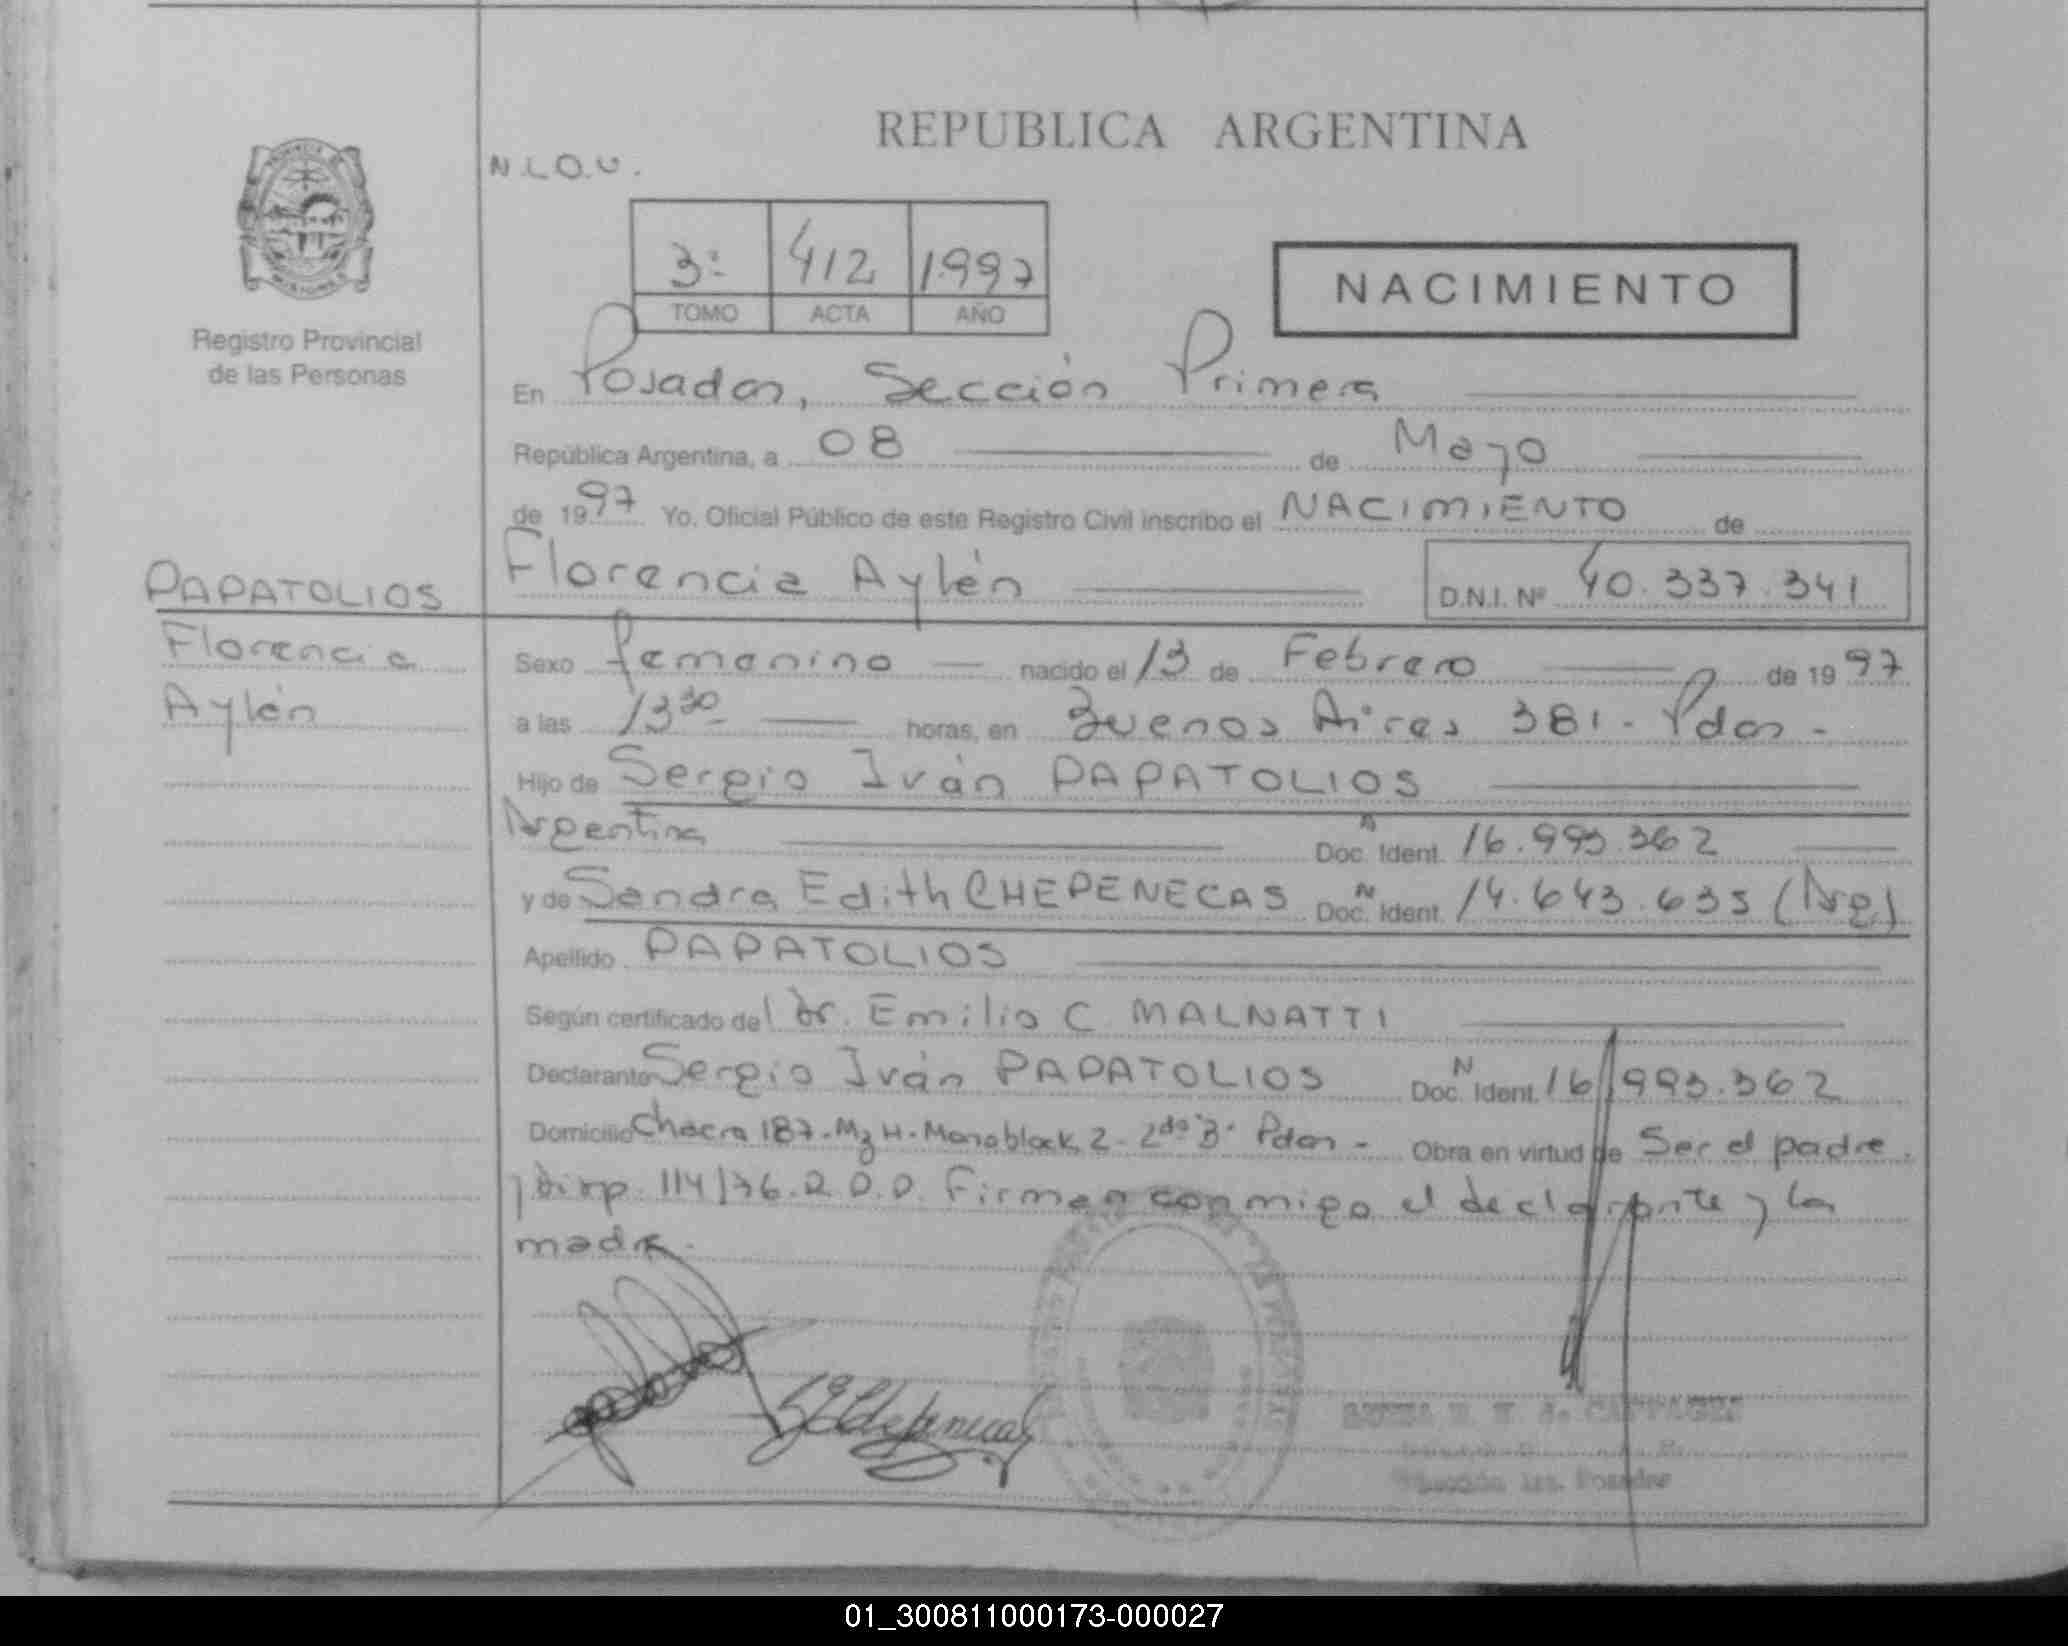 REPUBLICA ARGENTINA
N.L.O.U.
3º 412 1.997
TOMO ACTA AÑO
NACIMIENTO
Registro Provincial
de las Personas
En Posadas, Sección Primera
República Argentina, a 08 de Mayo
de 1997 Yo, Oficial Público de este Registro Civil inscribo el NACIMIENTO de
Florencia Aylén D.N.I. Nº 40.337.341
PAPATOLIOS
Florencia
Aylén
Sexo femenino nacido el 13 de Febrero de 1997
a las 13 30 horas, en Buenos Aires 381 - Pdas -
Hijo de Sergio Iván PAPATOLIOS
Argentina Doc. N Ident. 16.993.362
y de Sandra Edith CHEPENECAS Doc. N Ident. 14.643.635 (Arg)
Apellido PAPATOLIOS
Según certificado del Dr. Emilio C. MALNATTI
Declarante Sergio Iván PAPATOLIOS Doc. N Ident. 16.993.362
Domicilio Chacra 187. Mz H. Monoblock 2 - 2do B. Pdas - Obra en virtud de Ser el padre
y Disp. 114/76. Firman conmigo el declarante y la
madre.
Sección 1ra. Posadas
01_300811000173-000027